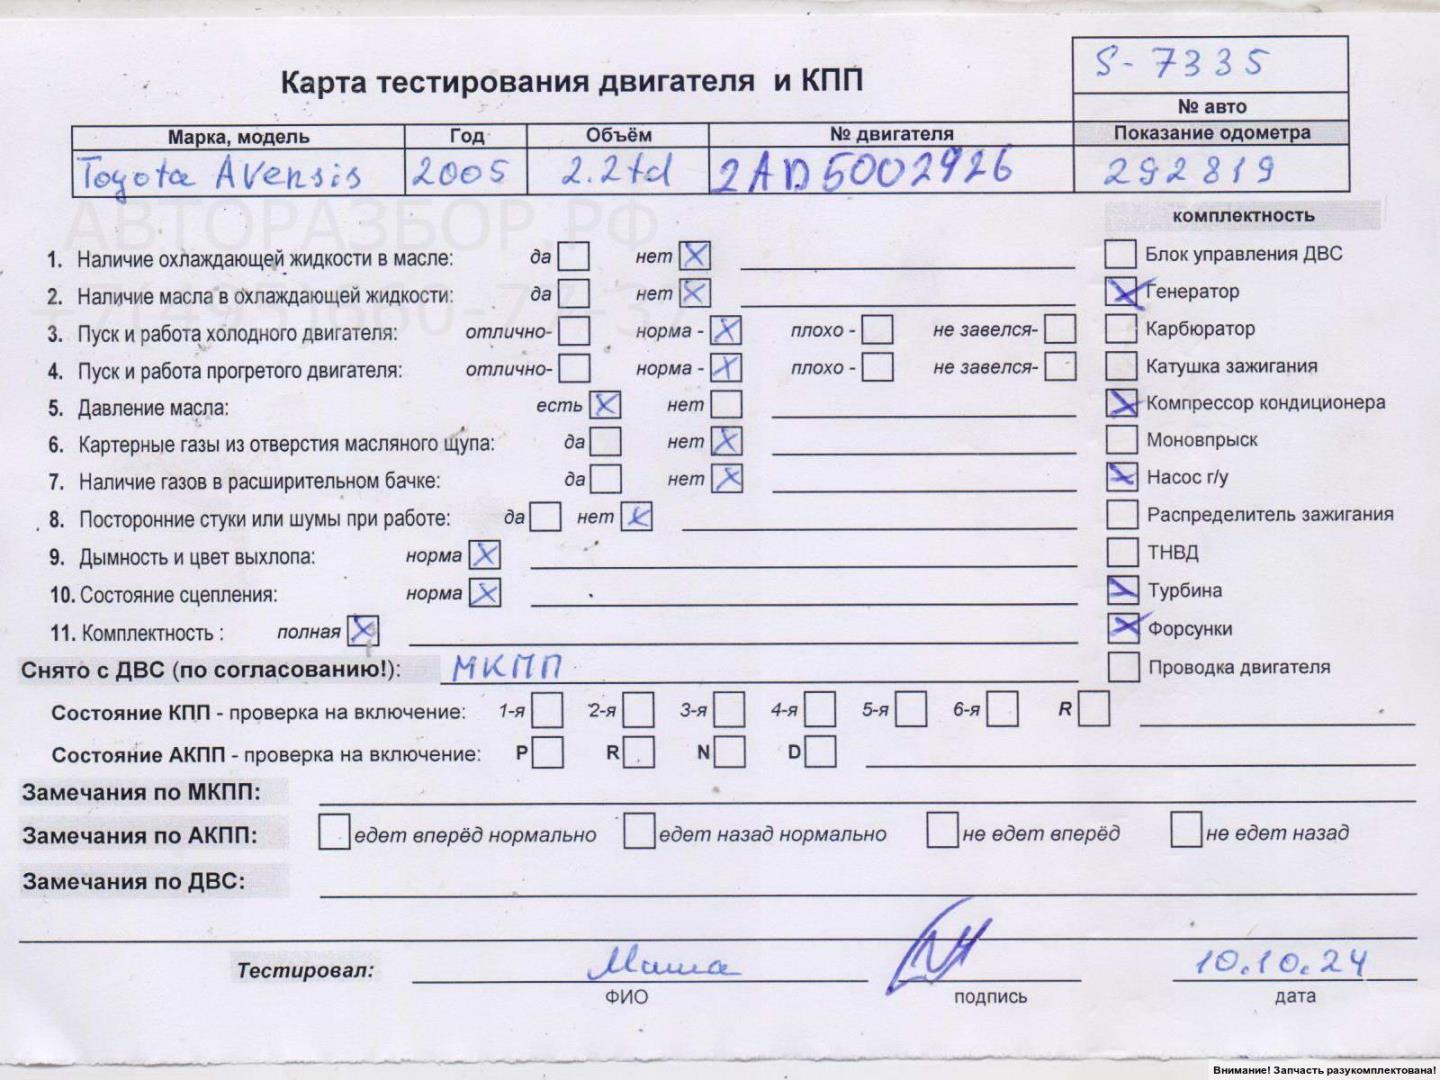 S-7335
Карта тестирования двигателя и КПП
№ авто
Марка, модель Год Объём № двигателя Показание одометра
Toyota Avensis 2005 2.2td 2AD5002926 292819
АВТОРАЗБОР.РФ
комплектность
1. Наличие охлаждающей жидкости в масле: да нет X Блок управления ДВС
+7(495)660-77-37
2. Наличие масла в охлаждающей жидкости: да нет X X Генератор
3. Пуск и работа холодного двигателя: отлично- норма - X плохо - не завелся- Карбюратор
4. Пуск и работа прогретого двигателя: отлично- норма - X плохо - не завелся- Катушка зажигания
5. Давление масла: есть X нет X Компрессор кондиционера
6. Картерные газы из отверстия масляного щупа: да нет X Моновпрыск
7. Наличие газов в расширительном бачке: да нет X X Насос г/у
8. Посторонние стуки или шумы при работе: да нет X Распределитель зажигания
9. Дымность и цвет выхлопа: норма X ТНВД
10. Состояние сцепления: норма X X Турбина
11. Комплектность : полная X X Форсунки
Снято с ДВС (по согласованию!): МКПП Проводка двигателя
Состояние КПП - проверка на включение: 1-я 2-я 3-я 4-я 5-я 6-я R
Состояние АКПП - проверка на включение: P R N D
Замечания по МКПП:
Замечания по АКПП: едет вперёд нормально едет назад нормально не едет вперёд не едет назад
Замечания по ДВС:
Тестировал: Миша 10.10.24
ФИО подпись дата
Внимание! Запчасть разукомплектована!